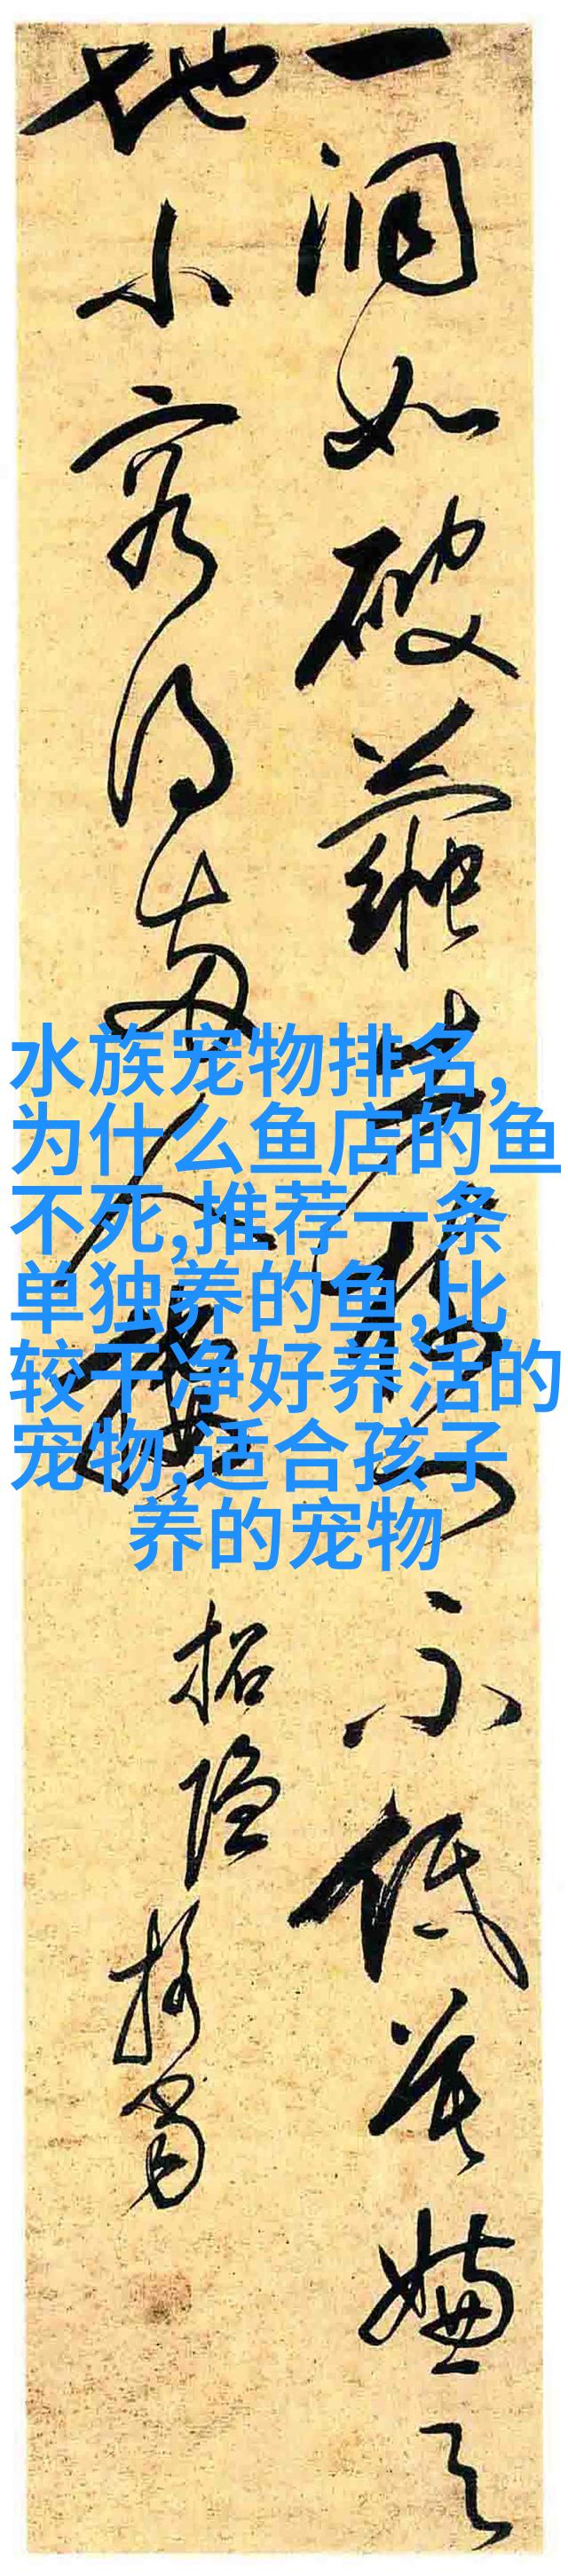 一洞如破不低莫嫌天
地小容得两人
招隐
水族宠物排名,
为什么鱼店的鱼
不死,推荐一条
单独养的鱼,比
较干净好养活的
宠物,适合孩子
养的宠物